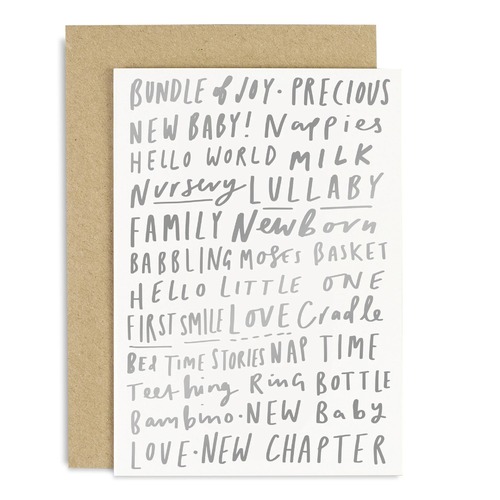 BUNDLE of JOY · PRECIOUS
NEW BABY! Nappies
HELLO WORLD MILK
Nursery LULLABY
FAMILY NewBorn
BABBLING MOSES BASKET
HELLO LITTLE ONE
FIRST SMILE LOVE Cradle
BED TIME STORIES NAP TIME
Teething Ring BOTTLE
Bambino · NEW Baby
LOVE · NEW CHAPTER